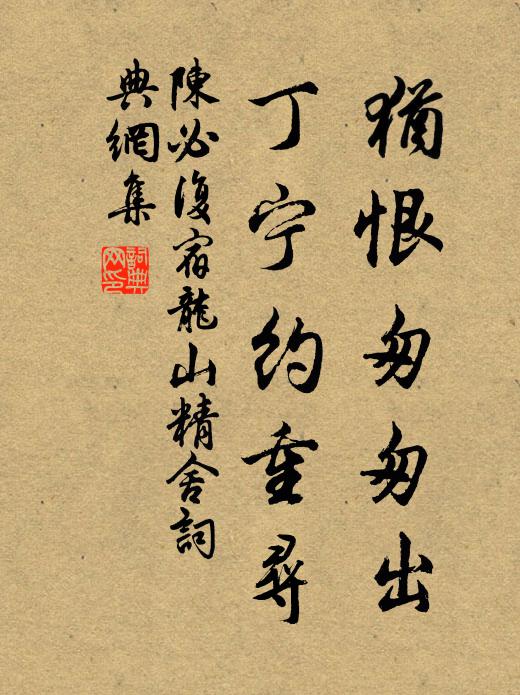 猶恨匆匆出
丁宁約重尋
陳必復宿龍山精舍詞
典網集
詞典网印